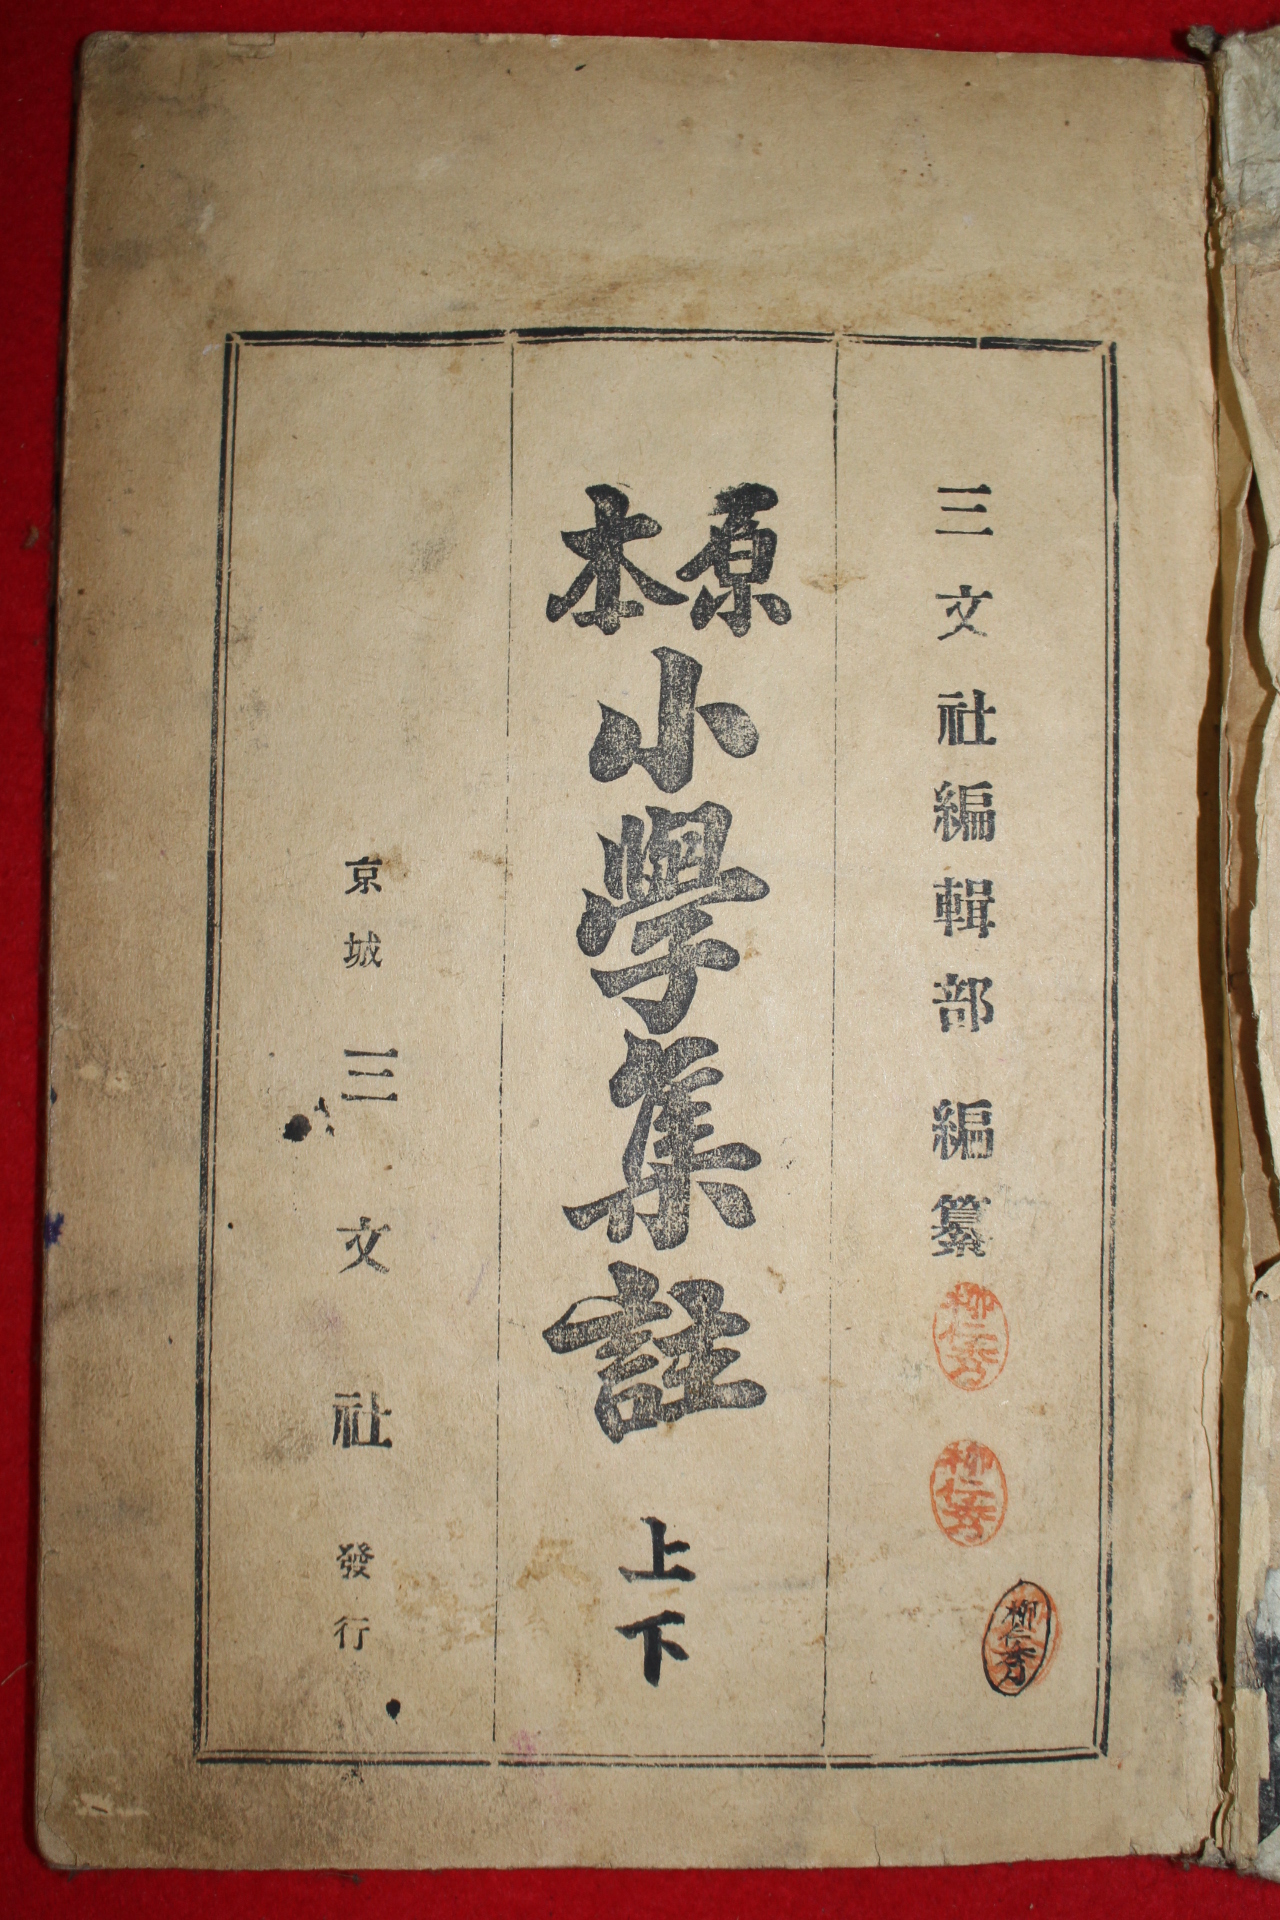 三文社編輯部 編纂
原本小學集註 上下
京城 三文社 發行
柳仁秀
柳仁秀
柳仁秀